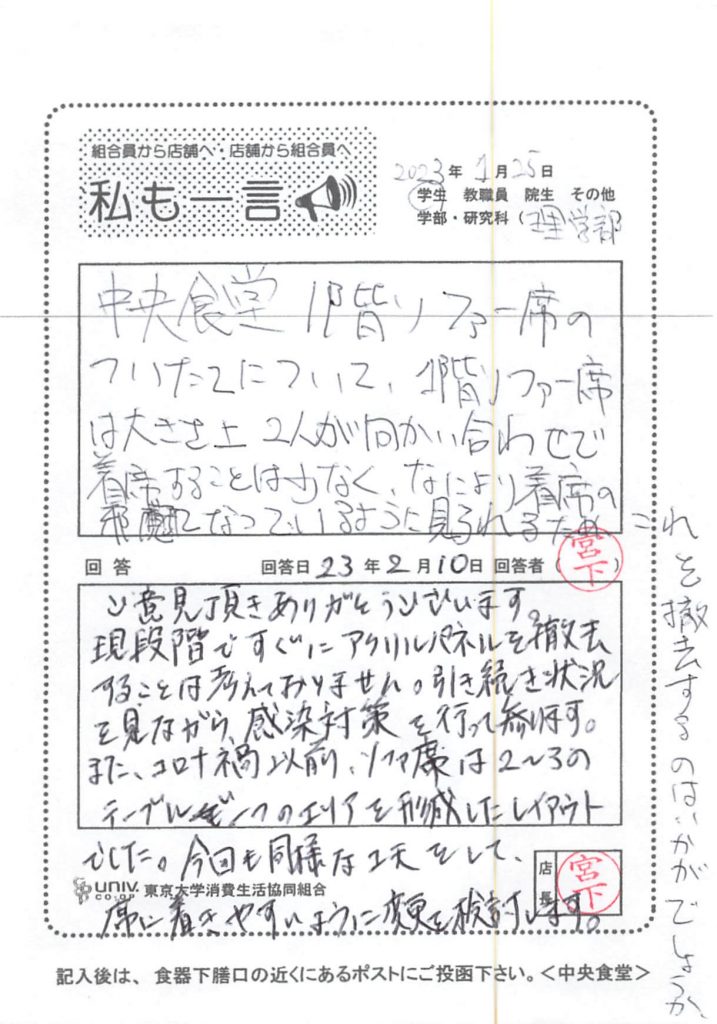 組合員から店舗へ・店舗から組合員へ
私も一言
2023年1月25日
学生 教職員 院生 その他
学部・研究科（理学部
中央食堂 1階ソファー席の
ついたてについて、1階ソファー席
は大きさ上 2人が向かい合わせで
着席することは少なく、なにより着席の
邪魔になっているように見られるため これ
を撤去するのはいかがでしょうか、
回答 回答日 23年2月10日 回答者（宮下）
ご意見頂きありがとうございます。
現段階ですぐにアクリルパネルを撤去
することは考えておりません。引き続き状況
を見ながら、感染対策を行って参ります。
また、コロナ禍以前、ソファ席は2〜3の
テーブルで一つのエリアを形成したレイアウト
でした。今回も同様な工夫をして、
席に着きやすいように変更を検討します。
univ. co-op 東京大学消費生活協同組合
店長 宮下
記入後は、食器下膳口の近くにあるポストにご投函下さい。＜中央食堂＞